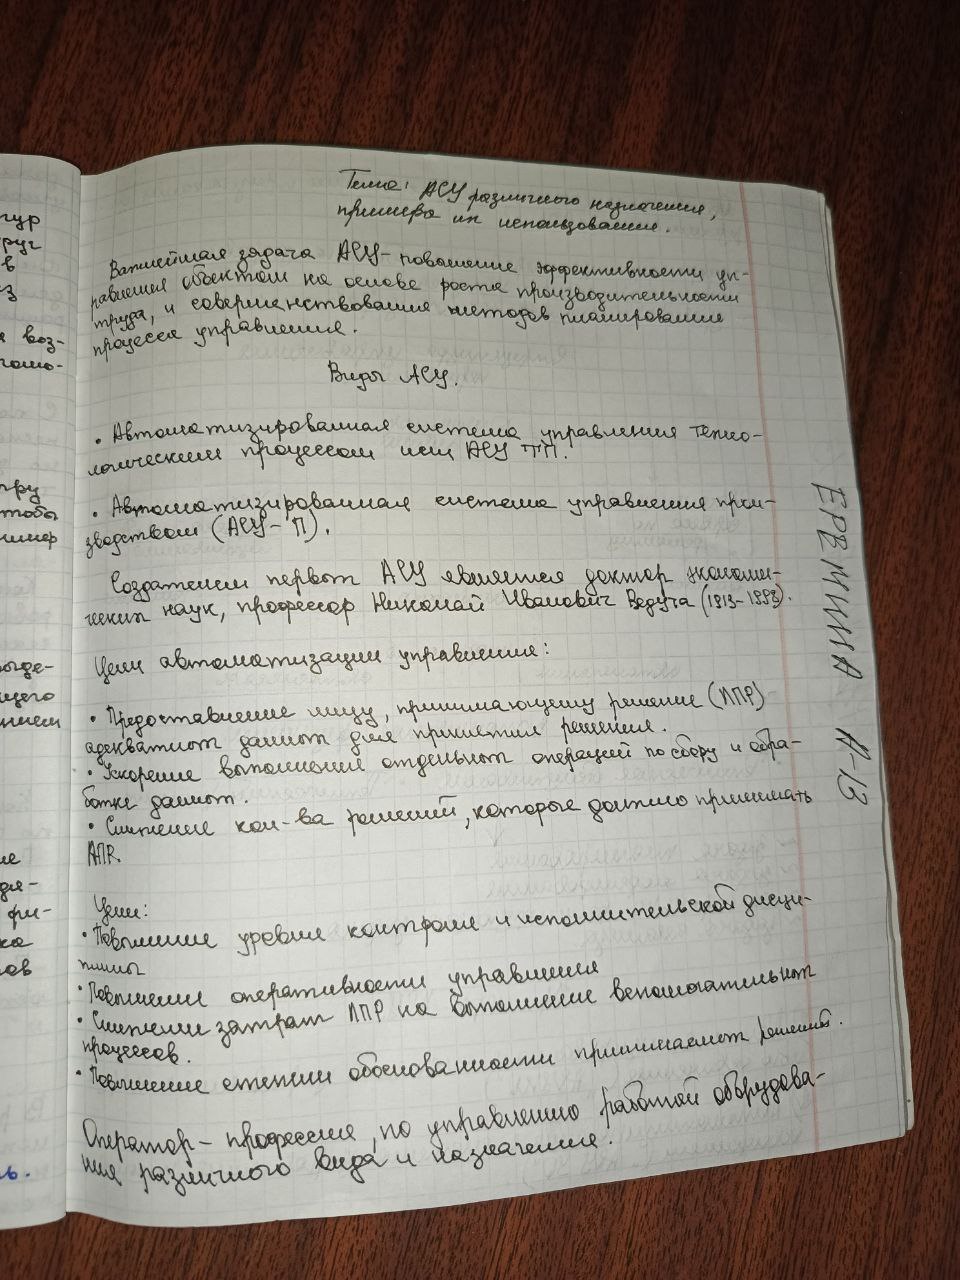 Тема: АСУ различного назначения,
примеры их использования.
Важнейшая задача АСУ- повышение эффективности уп-
равления объектом на основе роста производительности
труда, и совершенствования методов планирования
процесса управления.
Виды АСУ.
• Автоматизированная система управления техно-
логическим процессом или АСУ ТП.
• Автоматизированная система управления произ-
водством (АСУ- П).
Создателем первых АСУ является доктор экономи-
ческих наук, профессор Николай Иванович Ведута (1913-1998).
Цели автоматизации управления:
• Предоставление лицу, принимающему решение (ЛПР)
адекватных данных для принятия решения.
• Ускорение выполнения отдельных операций по сбору и обра-
ботке данных.
• Снижение кол-ва решений, которые должно принимать
ЛПР.
Цели:
• Повышение уровня контроля и исполнительской дисци-
плины
• Повышение оперативности управления
• Снижение затрат ЛПР на выполнение вспомогательных
процессов.
• Повышение степени обоснованности принимаемых решений.
Оператор- профессия, по управлению работой оборудова-
ния различного вида и назначения.
ЕРЕМИНА И-13